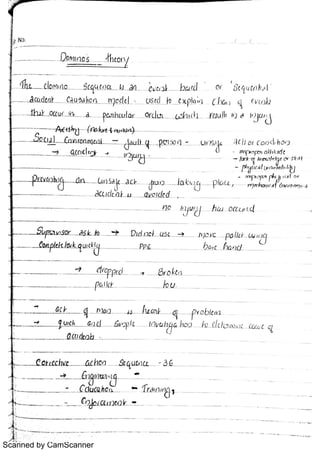 P No.
Domino's theory
The domino sequence is an event based or "sequential
accident causation model used to explain chain of events
that occur in a particular order which results in a injury
Ancestry (nature & nurture)
Social Environment → fault of person - Unsafe Act or Condition
→ accident → injury.
- improper attitude
- lack of knowledge or skill
- physical unsuitability
- improper physical or
mechanical environment
preventing an unsafe act from taking place,
accident is avoided
no injury has occurred
Supervisor ask to → Did not use → move pallet using
Complete work quickly PPE bare hand
→ dropped → Broken
pallet toe.
- act of man is heart of problem
- quick and simple investigation to determine cause of
accidents.
Corrective action Sequence - 3E
→ Engineering -
- Education - Training,
- Enforcement -
Scanned by CamScanner